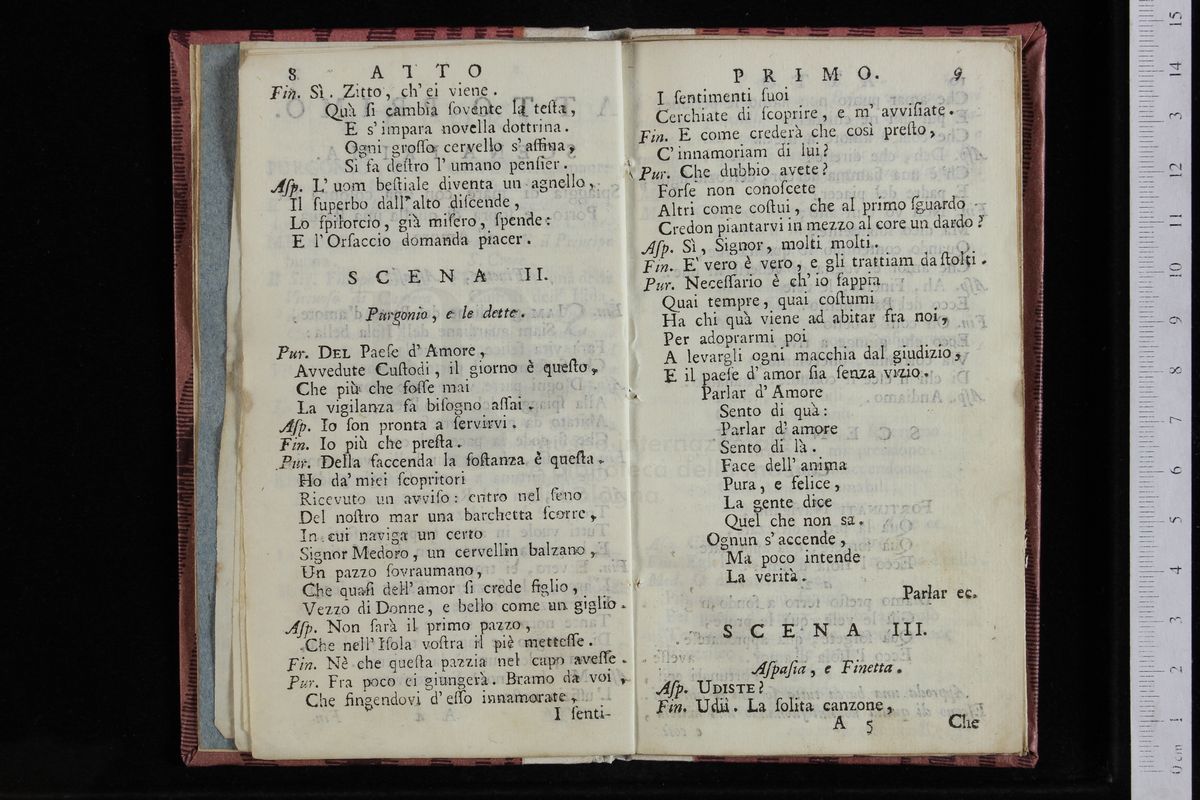 8 ATTO
Fin. Sì. Zitto, ch' ei viene.
Quà ſi cambia ſovente la teſta,
E s' impara novella dottrina.
Ogni groſſo cervello s' affina,
Si fa deſtro l' umano penſier.
Aſp. L' uom beſtiale diventa un agnello,
Il ſuperbo dall' alto diſcende,
Lo ſpilorcio, già miſero, ſpende:
E l' Orſaccio domanda piacer.
SCENA II.
Purgonio, e le dette.
Pur. DEL Paeſe d' Amore,
Avvedute Cuſtodi, il giorno è queſto,
Che più che foſſe mai
La vigilanza fa biſogno aſſai.
Aſp. Io ſon pronta a ſervirvi.
Fin. Io più che preſta.
Pur. Della faccenda la ſoſtanza è queſta.
Ho da' miei ſcopritori
Ricevuto un avviſo: entro nel ſeno
Del noſtro mar una barchetta ſcorre,
In cui naviga un certo
Signor Medoro, un cervellin balzano,
Un pazzo ſovraumano,
Che quaſi dell' amor ſi crede figlio,
Vezzo di Donne, e bello come un giglio.
Aſp. Non ſarà il primo pazzo,
Che nell' Iſola voſtra il piè metteſſe.
Fin. Nè che queſta pazzia nel capo aveſſe.
Pur. Fra poco ei giungerà. Bramo da voi,
Che fingendovi d' eſſo innamorate,
I ſenti-
PRIMO. 9
I ſentimenti ſuoi
Cerchiate di ſcoprire, e m' avviſiate.
Fin. E come crederà che così preſto,
C' innamoriam di lui?
Pur. Che dubbio avete?
Forſe non conoſcete
Altri come coſtui, che al primo ſguardo
Credon piantarvi in mezzo al core un dardo?
Aſp. Sì, Signor, molti molti.
Fin. E' vero è vero, e gli trattiam da ſtolti.
Pur. Neceſſario è ch' io ſappia
Quai tempre, quai coſtumi
Ha chi quà viene ad abitar fra noi,
Per adoprarmi poi
A levargli ogni macchia dal giudizio,
E il paeſe d' amor ſia ſenza vizio.
Parlar d' Amore
Sento di quà:
Parlar d' amore
Sento di là.
Face dell' anima
Pura, e felice,
La gente dice
Quel che non sa.
Ognun s' accende,
Ma poco intende
La verità.
Parlar ec.
SCENA III.
Aſpaſia, e Finetta.
Aſp. UDISTE?
Fin. Udii. La ſolita canzone,
A 5 Che
0 cm 1 2 3 4 5 6 7 8 9 10 11 12 13 14 15